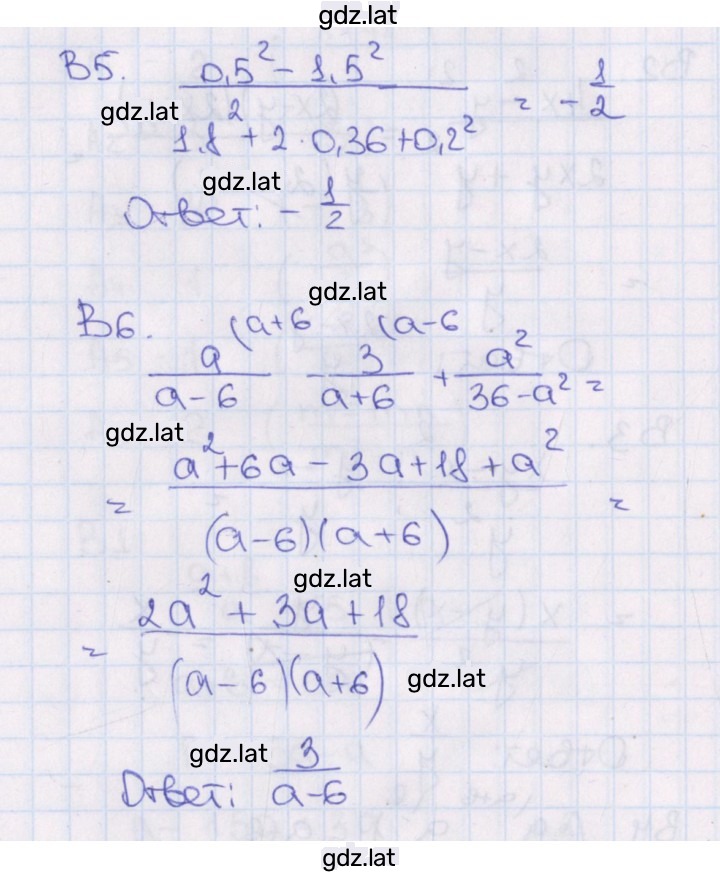 gdz.lat
B5. (0,5² - 1,5²) / (1,8² + 2 · 0,36 + 0,2²) = - 1/2
gdz.lat
gdz.lat
Ответ: - 1/2
gdz.lat
B6. (a+6 (a-6
a/(a-6) - 3/(a+6) + a²/(36-a²) =
gdz.lat
= (a² + 6a - 3a + 18 + a²) / ((a-6)(a+6)) =
gdz.lat
= (2a² + 3a + 18) / ((a-6)(a+6))
gdz.lat
gdz.lat
Ответ: 3/(a-6)
gdz.lat